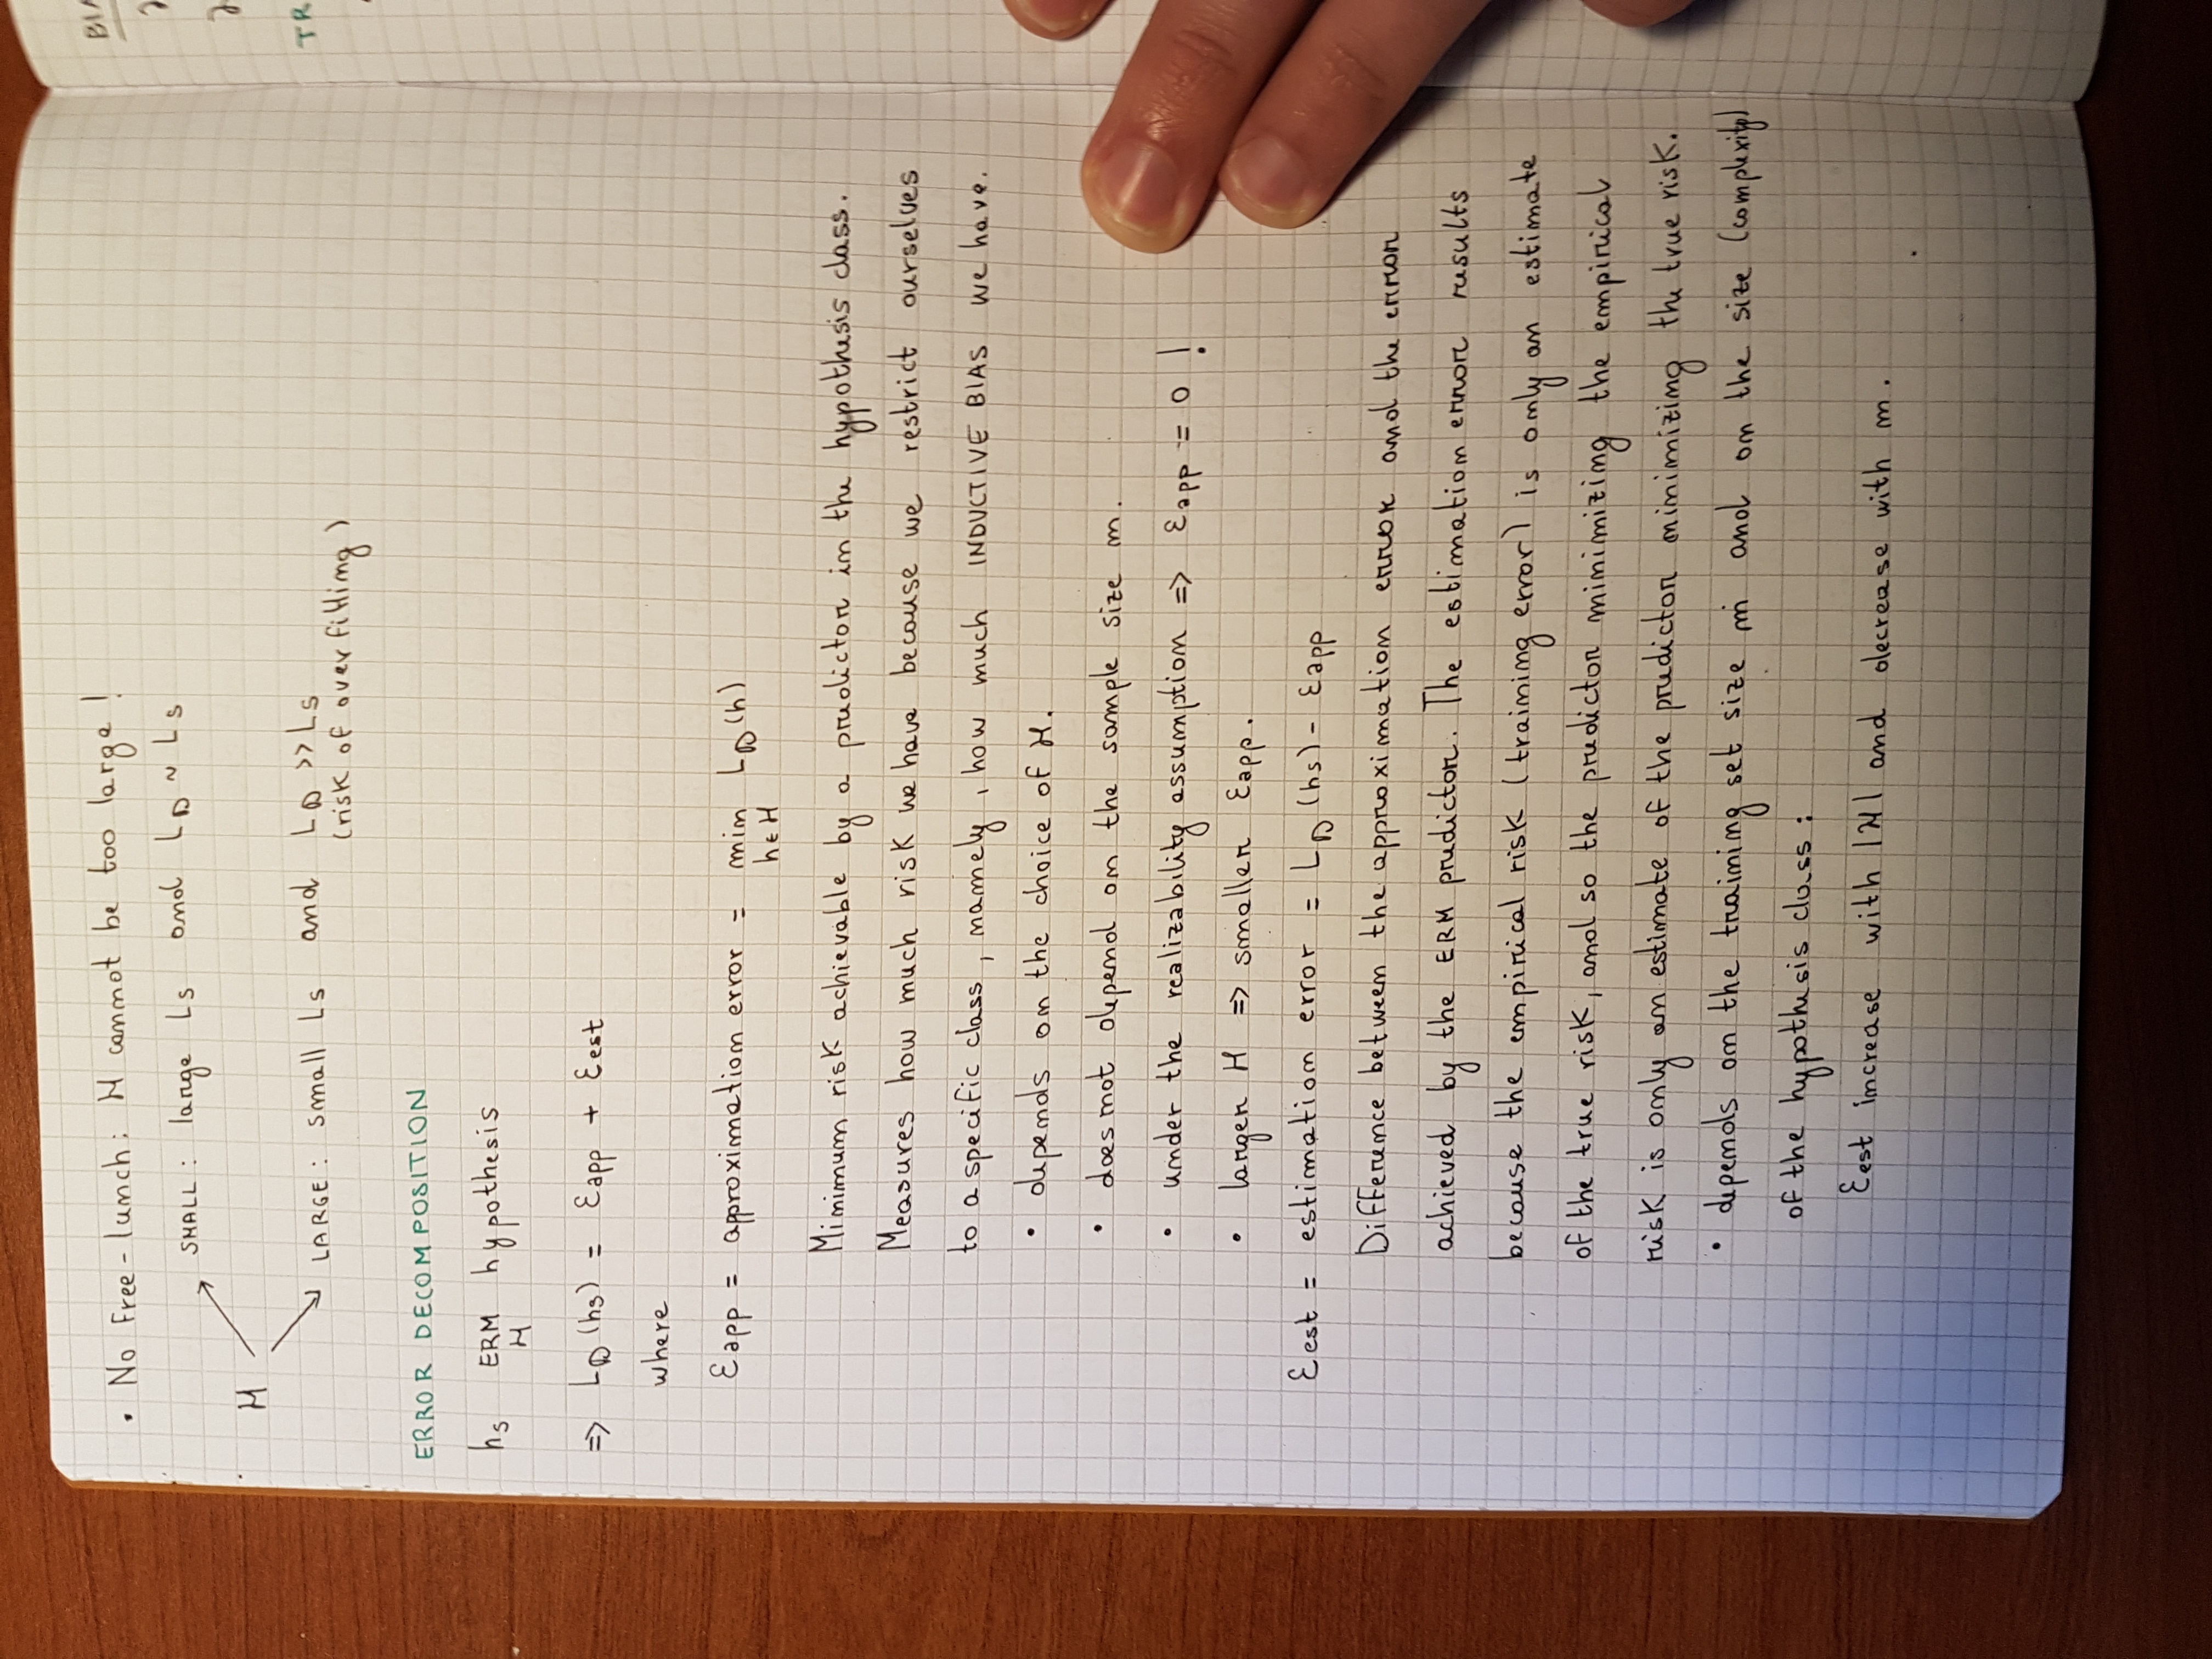 • No Free-lunch: H cannot be too large!
SMALL: large Ls and L𝒟 ~ Ls
H
LARGE: small Ls and L𝒟 >> Ls
(risk of overfitting)
ERROR DECOMPOSITION
hs ERM hypothesis
H
=> L𝒟(hs) = Ɛapp + Ɛest
where
Ɛapp = approximation error = min L𝒟(h)
h∈H
Minimum risk achievable by a predictor in the hypothesis class.
Measures how much risk we have because we restrict ourselves
to a specific class, namely, how much INDUCTIVE BIAS we have.
• depends on the choice of H.
• does not depend on the sample size m.
• under the realizability assumption => Ɛapp = 0 !
• larger H => smaller Ɛapp.
Ɛest = estimation error = L𝒟(hs) - Ɛapp
Difference between the approximation error and the error
achieved by the ERM predictor. The estimation error results
because the empirical risk (training error) is only an estimate
of the true risk, and so the predictor minimizing the empirical
risk is only an estimate of the predictor minimizing the true risk.
• depends on the training set size m and on the size (complexity)
of the hypothesis class:
Ɛest increase with |H| and decrease with m.
BIA
TR